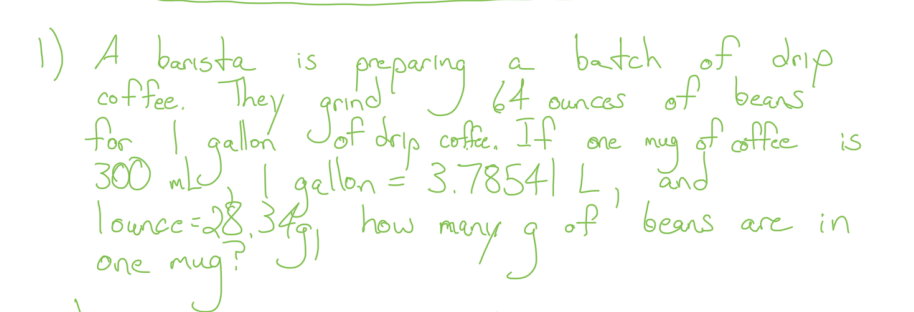 1) A barista is preparing a batch of drip
coffee. They grind 64 ounces of beans
for 1 gallon of drip coffee. If one mug of coffee is
300 mL, 1 gallon = 3.78541 L, and
1 ounce = 28.34g, how many g of beans are in
one mug?